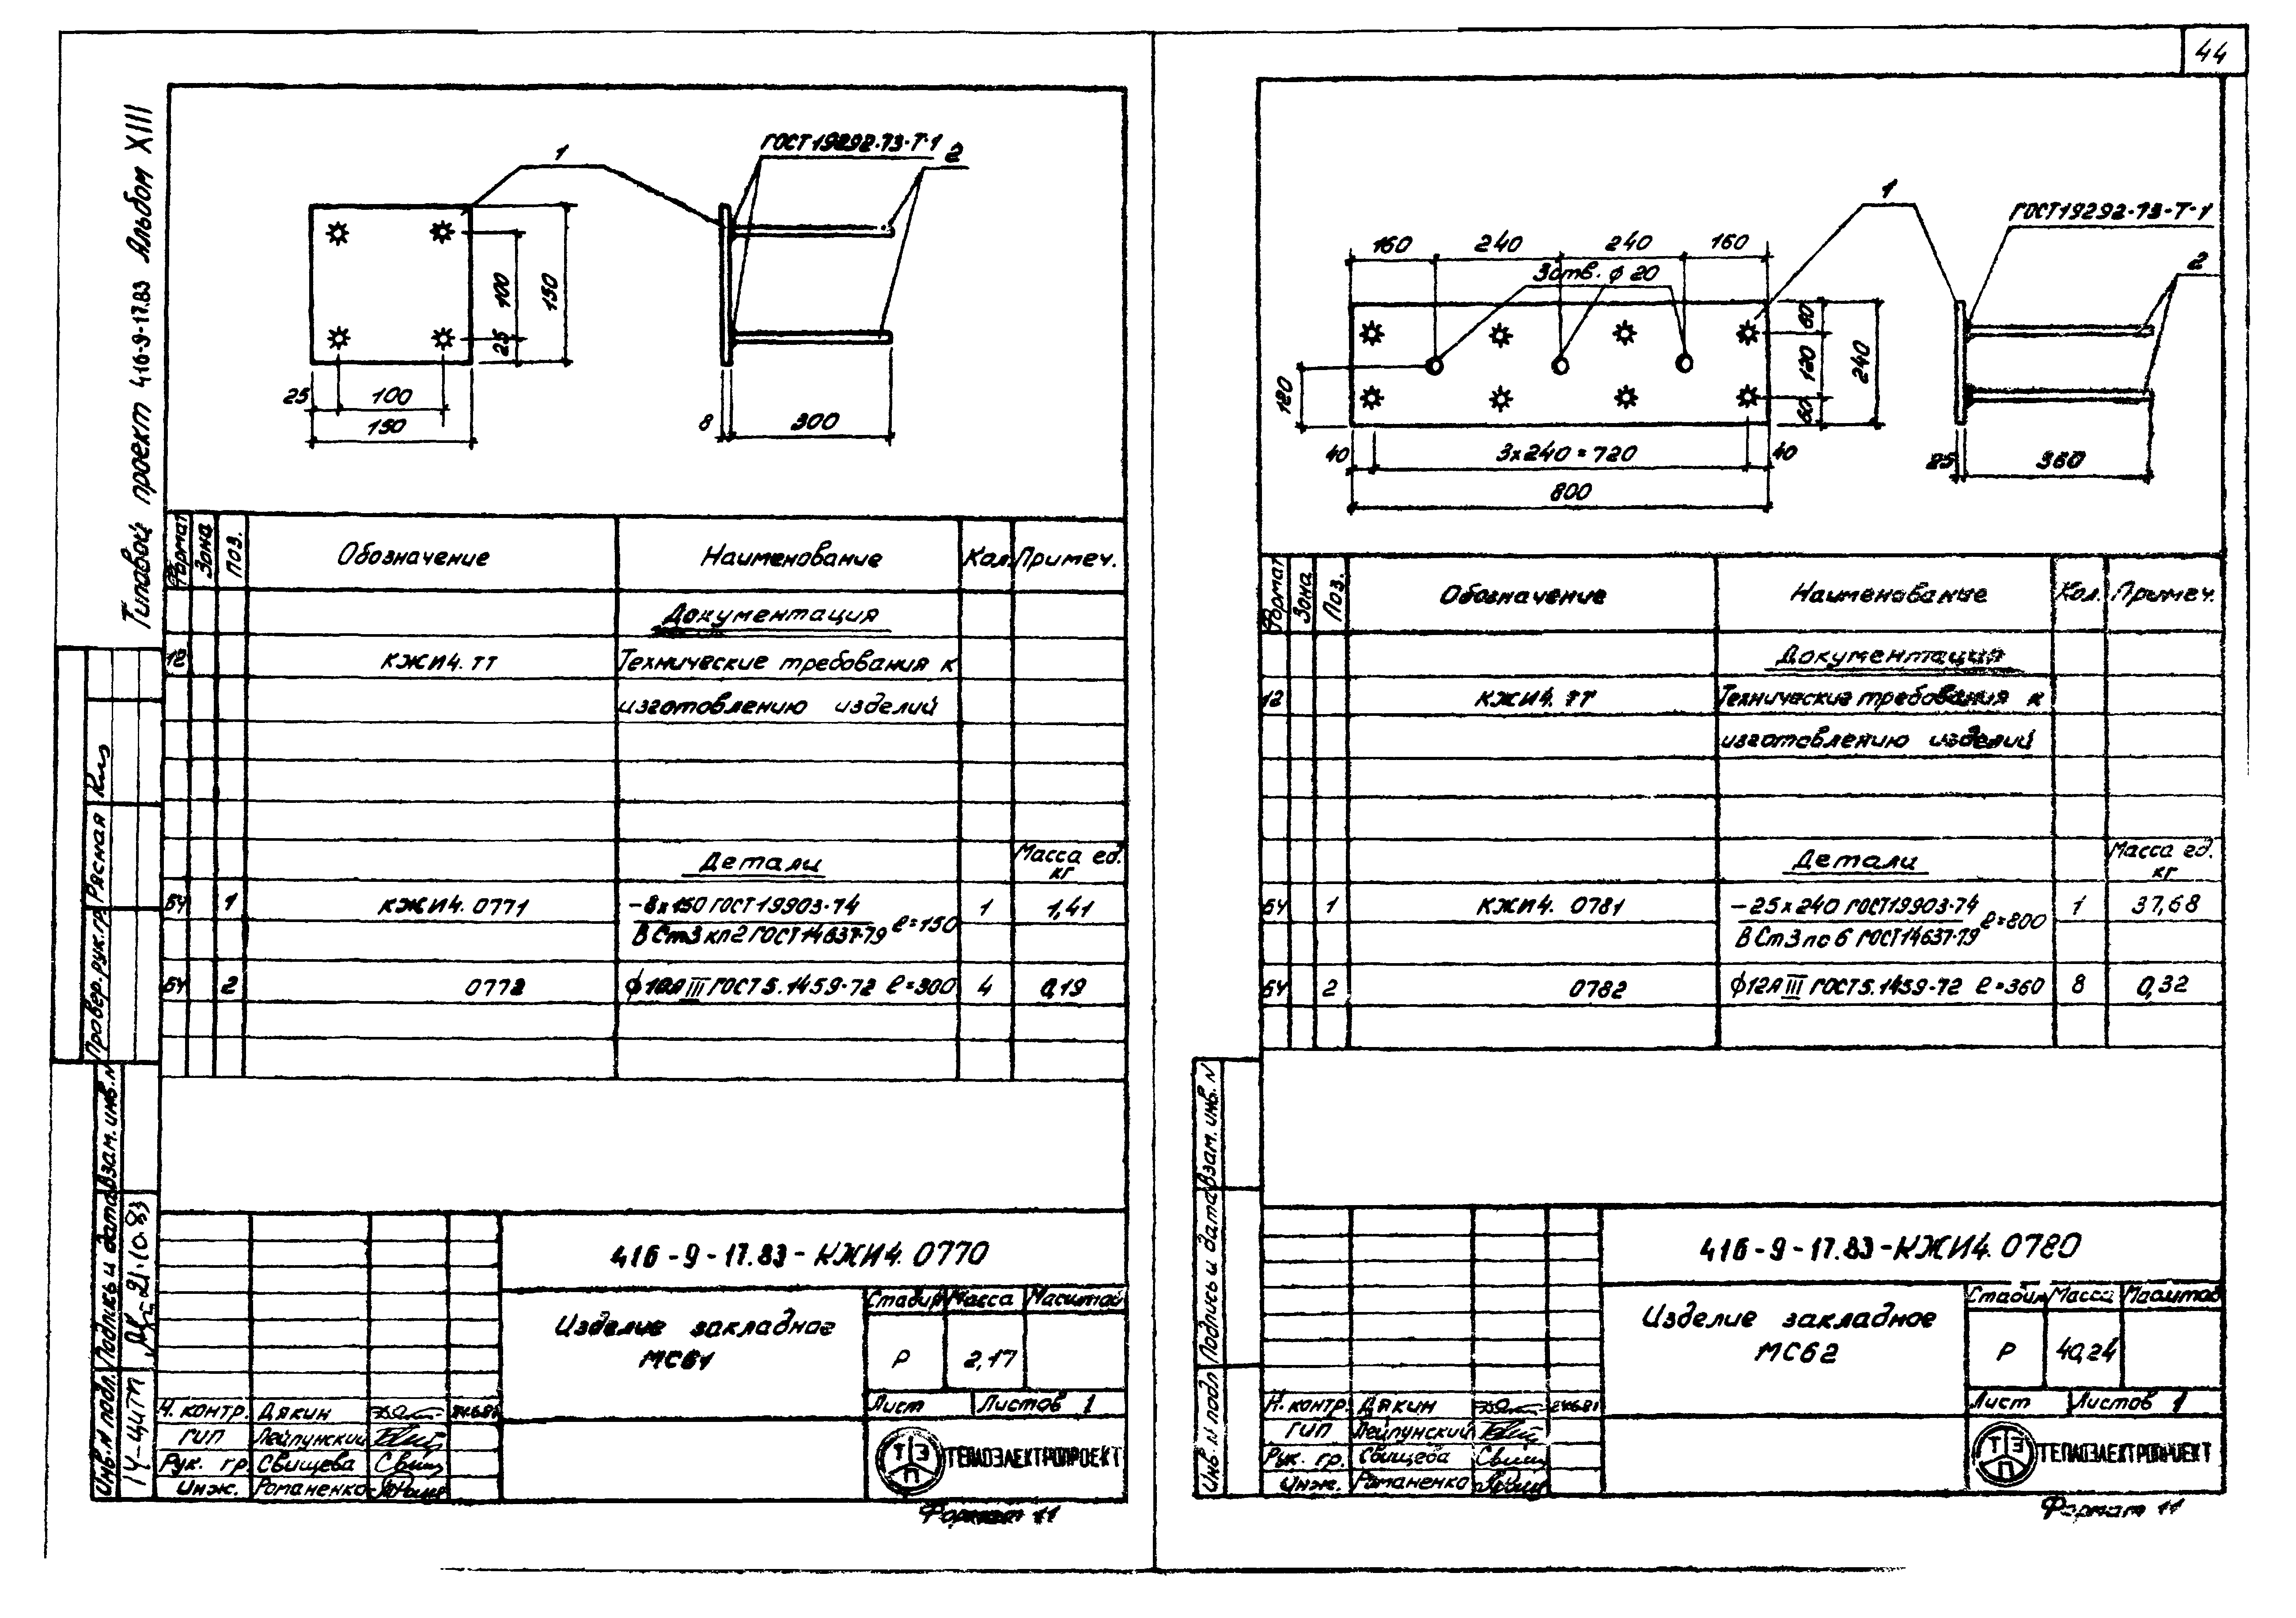 44
Типовой проект 416-9-17.83 Альбом XIII
1
ГОСТ 19292-73-Т-1
2
100
150
25
25
100
150
8
300
Формат
Зона
Поз.
Обозначение
Наименование
Кол.
Примеч.
Документация
12
КЖИ4.ТТ
Технические требования к
изготовлению изделий
Детали
Масса ед.
кг
БЧ
1
КЖИ4. 0771
-8х150 ГОСТ 19903-74
ВСт3кп2 ГОСТ 14637-79
ℓ=150
1
1,41
БЧ
2
0772
ф10АIII ГОСТ 5.1459-72 ℓ=300
4
0,19
Провер. рук.гр.
Рясная
Взам. инв. N
Подпись и дата
21.10.83
Инв. N подл.
416-9-17.83-КЖИ4. 0770
Изделие закладное
МС61
Стадия
Масса
Масштаб
Р
2,17
Лист
Листов 1
Н. контр. Дякин
ГИП Лейпунский
Рук. гр. Свищева
Инж. Романенко
ТЭП
ТЕПЛОЭЛЕКТРОПРОЕКТ
Формат 11
1
ГОСТ 19292-73-Т-1
2
160
240
240
160
3 отв. ф 20
60
120
60
240
120
40
3х240=720
40
800
25
360
Формат
Зона
Поз.
Обозначение
Наименование
Кол.
Примеч.
Документация
12
КЖИ4. ТТ
Технические требования к
изготовлению изделий
Детали
Масса ед.
кг
БЧ
1
КЖИ4. 0781
-25х240 ГОСТ 19903-74
ВСт3пс6 ГОСТ 14637-79
ℓ=800
1
37,68
БЧ
2
0782
ф12АIII ГОСТ 5.1459-72 ℓ=360
8
0,32
Взам. инв. N
Подпись и дата
Инв. N подл
416-9-17.83-КЖИ4. 0780
Изделие закладное
МС62
Стадия
Масса
Масштаб
Р
40,24
Лист
Листов 1
Н. контр. Дякин
ГИП Лейпунский
Рук. гр. Свищева
Инж. Романенко
ТЭП
ТЕПЛОЭЛЕКТРОПРОЕКТ
Формат 11